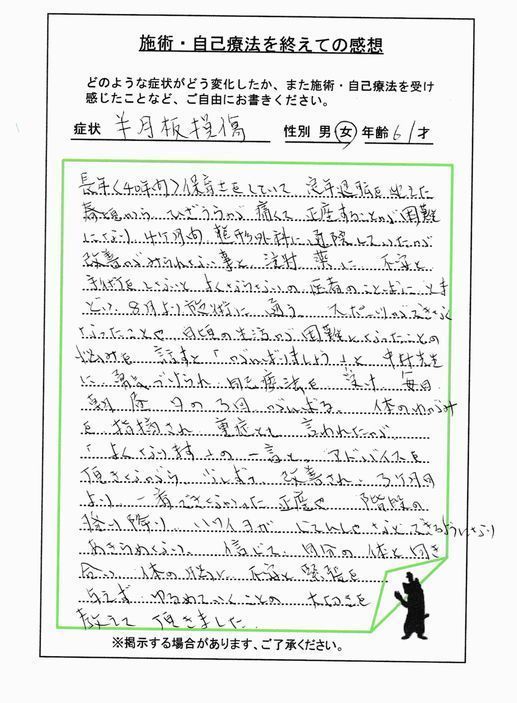 施術・自己療法を終えての感想
どのような症状がどう変化したか、また施術・自己療法を受け
感じたことなど、ご自由にお書きください。
症状 半月板損傷 性別 男 女 年齢 61才
長年(40年間)保育士をしていて 定年退職を迎えた
春頃から ひざうらが 痛くて 正座することが困難
になり 4ケ月間 整形外科に通院していたが
改善がみられない事と 注射 薬に 不安と
手術をしないと よくならないの 医者のことばに
8月より 施術に 通う。スポーツができなく
なったことや 日頃の生活が 困難となったことの
悩みを 話すと「がんばりましょう」と 中村先生
に 勇気づけられ 自己療法を 受け 毎日
朝 昼 夕の3回 がんばる。 体のゆがみ
を 指摘され 重症とも 言われたが
「よくなります」の 一言と アドバイスを
頂きながら 少しずつ 改善され 3ケ月目
より 一番できなかった 正座や 階段の
昇り降り ハワイヨガ じてんしゃ などできるようになり
あきらめない 信じて 自分の体と向き
合い 体の 不安と緊張を
与えず ゆるめていくことの 大切さを
教えて 頂きました
※掲示する場合があります、ご了承ください。